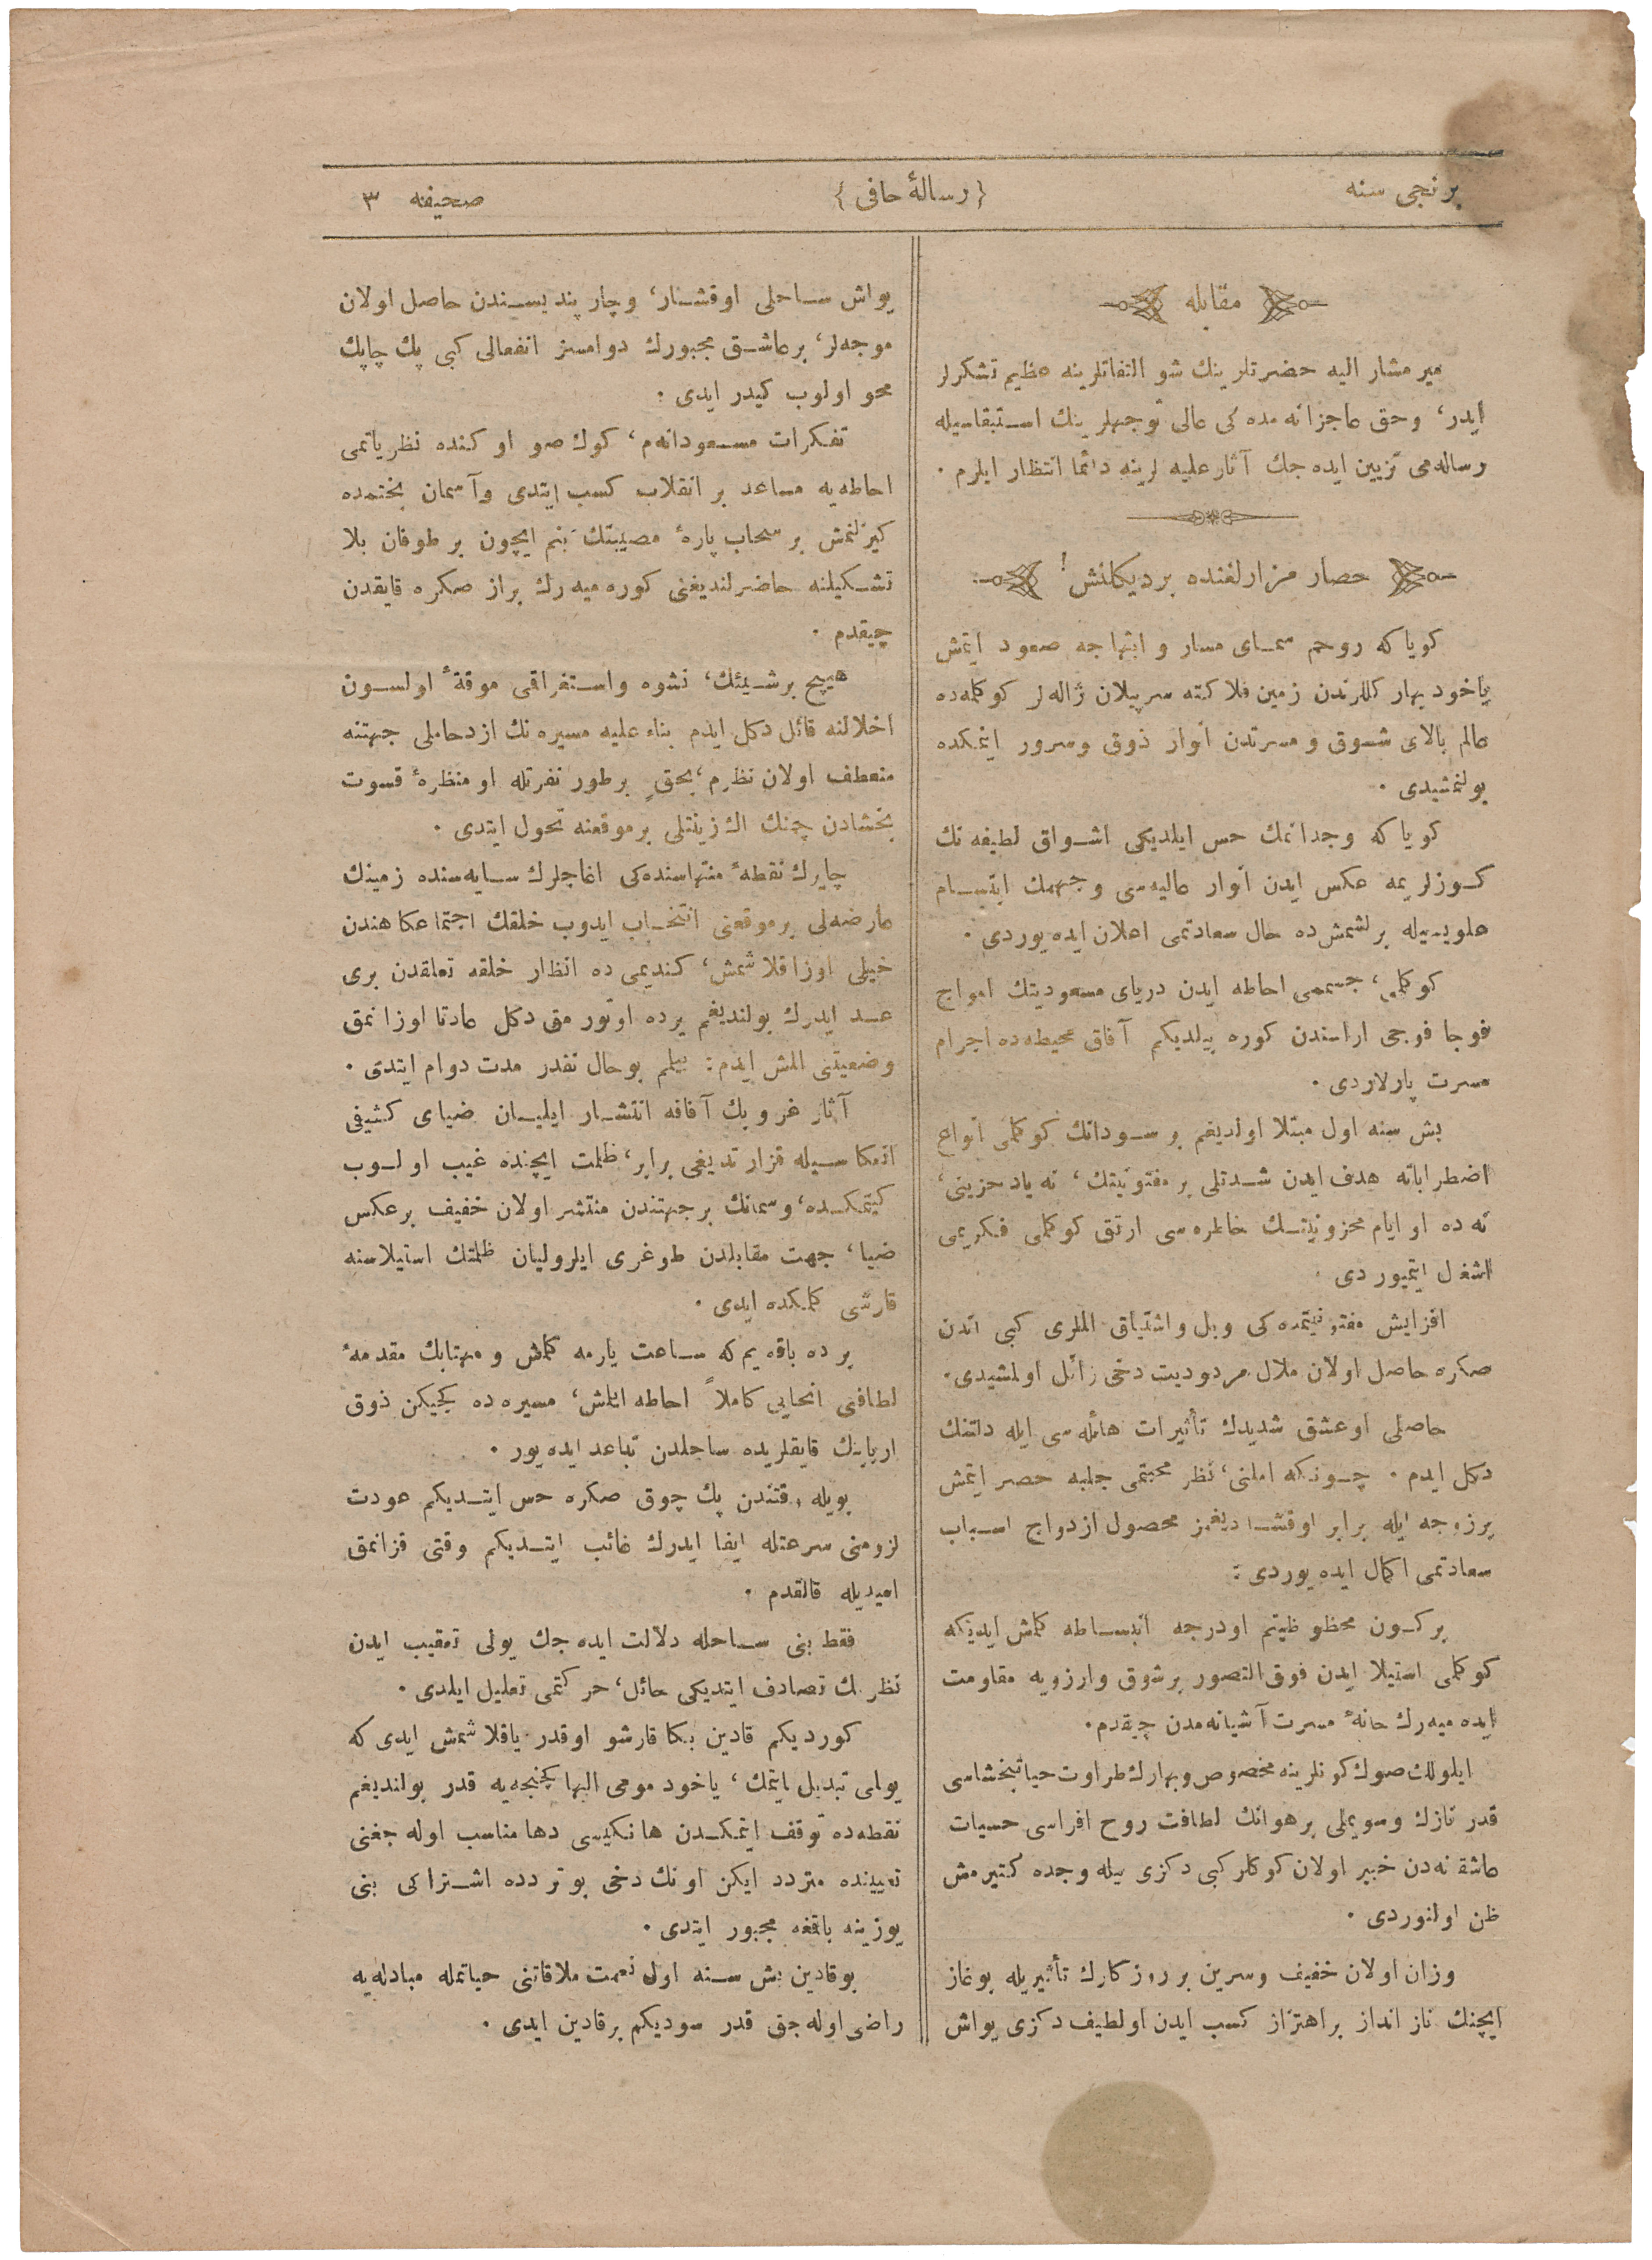 برنجی سنه
{رسالهٔ حافی}
صحیفه ۳
مقابله
میر مشار الیه حضرتلرینك شو التفاتلرینه عظیم تشكرلر
ایدر، وحق عاجزانه مده كی عالی توجهلرینك استبقاسیله
رساله می تزیین ایده جك آثار علیه لرینه دائما انتظار ایلرم .
حصار مزارلغنده بردیكلنش !
كویا كه روحم سمای مسار و ابتهاجه صعود ایتمش
یاخود بهار كللرندن زمین فلاكته سرپیلان ژاله لر كوكلمه ده
عالم بالای شوق و مسرتدن انوار ذوق وسرور ایتمكده
بولنمشیدی .
كویا كه وجدانمك حس ایلدیكی اشواق لطیفه نك
كوزلریمه عكس ایدن انوار عالیه سی وجهمك ابتسام
علویه یله برلشمش ده حال سعادتمی اعلان ایده یوردی .
كوكلمی، جسممی احاطه ایدن دریای مسعودیتك امواج
فوجا فوجی اراسندن كوره بیلدیكم آفاق محیطه ده اجرام
مسرت پارلاردی .
بش سنه اول مبتلا اولدیغم بر سودانك كوكلمی انواع
اضطراباته هدف ایدن شدتلی بر مفتونیتك، نه یاد حزینی،
نه ده او ایام محزونیتك خاطره سی ارتق كوكلمی فكریمی
اشغل ایتمیوردی .
افزایش مفتونیتمده كی وبل واشتیاق المللری كبی اندن
صكره حاصل اولان ملال مردودیت دخی زائل اولمشیدی .
حاصلی اوعشق شدیدك تأثیرات هائله سی ایله دلتنك
دكل ایدم . چونكه املنی، نظر محبتمی جلبه حصر ایتمش
برزوجه ایله برابر اوقشادیغمز محصول ازدواج اسباب
سعادتمی اكمال ایده یوردی :
بركون محظوظیتم اودرجه انبساطه كلمش ایدیكه
كوكلمی استیلا ایدن فوق التصور برشوق وارزویه مقاومت
ایده میه رك خانهٔ مسرت آشیانه مدن چیقدم .
ایلولك صوك كونلرینه مخصوص وبهارك طراوت حیاتبخشاسی
قدر نازك وسویملی برهوانك لطافت روح افزاسی حسیات
عاشقانه دن خبیر اولان كوكللر كبی دكزی بیله وجده كتیرمش
ظن اولنوردی .
وزان اولان خفیف وسرین بر روزكارك تأثیریله بوغاز
ایچنك ناز انداز براهتزاز كسب ایدن اولطیف دكزی یواش
یواش ساحلی اوقشار، وچارپندیسندن حاصل اولان
موجه لر، برعاشق مجبورك دوامسز انفعالی كبی پك چاپك
محو اولوب كیدر ایدی :
تفكرات مسعودانه م، كوك صو اوكنده نظریاتمی
احاطه یه مساعد بر انقلاب كسب ایتدی وآسمان بختمده
كیزلنمش بر سحاب پارهٔ مصیبتك بنم ایچون بر طوفان بلا
تشكیلنه حاضرلندیغنی كوره میه رك براز صكره قایقدن
چیقدم .
هیچ برشیئك، نشوه واستغراقی موقةً اولسون
اخلالنه قائل دكل ایدم بناء علیه مسیره نك ازدحاملی جهتنه
منعطف اولان نظرم، بحقٍ برطور نفرتله او منظرهٔ قسوت
بخشادن چمنك اك زینتلی برموقعنه تحول ایتدی .
چایرك نقطهٔ منتهاسنده كی اغاجلرك سایه سنده زمینك
عارضه لی برموقعنی انتخاب ایدوب خلقك اجتماعكاهندن
خیلی اوزاقلاشمش، كندیمی ده انظار خلقه تعلقدن بری
عد ایدرك بولندیغم یرده اوتورمق دكل عادتا اوزانمق
وضعیتنی المش ایدم : بیلمم بوحال نقدر مدت دوام ایتدی .
آثار غروبك آفاقه انتشار ایلیان ضیای كثیفی
انعكاسیله قزارتدیغی برابر، ظلمت ایچنده غیب اولوب
كیتمكده، وسمانك برجهتندن منتشر اولان خفیف برعكس
ضیا، جهت مقابلدن طوغری ایلرولیان ظلمتك استیلاسنه
قارشی كلمكده ایدی .
برده باقه یم كه ساعت یارمه كلمش ومهتابك مقدمهٔ
لطافی انحایی كاملاً احاطه ایتمش، مسیره ده كجیكن ذوق
اربابنك قایقلریده ساحلدن تباعد ایده یور .
بویله وقتندن پك چوق صكره حس ایتدیكم عودت
لزومنی سرعتله ایفا ایدرك غائب ایتدیكم وقتی قزانمق
امیدیله قالقدم .
فقط بنی ساحله دلالت ایده جك یولی تعقیب ایدن
نظرمك تصادف ایتدیكی حائل، حركتمی تعلیل ایلدی .
كوردیكم قادین بكا قارشو اوقدر یاقلاشمش ایدی كه
یولی تبدیل ایتمك، یاخود مومی الیها كچنجه یه قدر بولندیغم
نقطه ده توقف ایتمكدن هانكیسی دها مناسب اوله جغنی
تعیینده متردد ایكن اونك دخی بو ترددە اشتراكی بنی
یوزینه باقمغه مجبور ایتدی .
بوقادین بش سنه اول نعمت ملاقاتنی حیاتمله مبادله یه
راضی اوله جق قدر سودیكم برقادین ایدی .